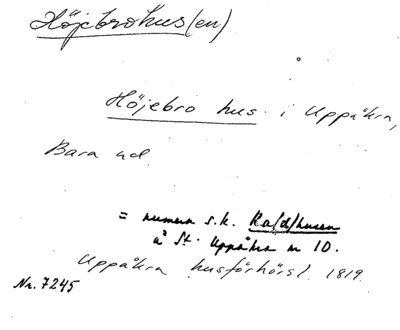 Höjebrohus(en)
Höjebro hus i Uppåkra,
Bara hd.
= numera s.k. Ra(d)husen
å St. Uppåkra n 10.
Uppåkra husförhörsl. 1819.
Nr. 7245